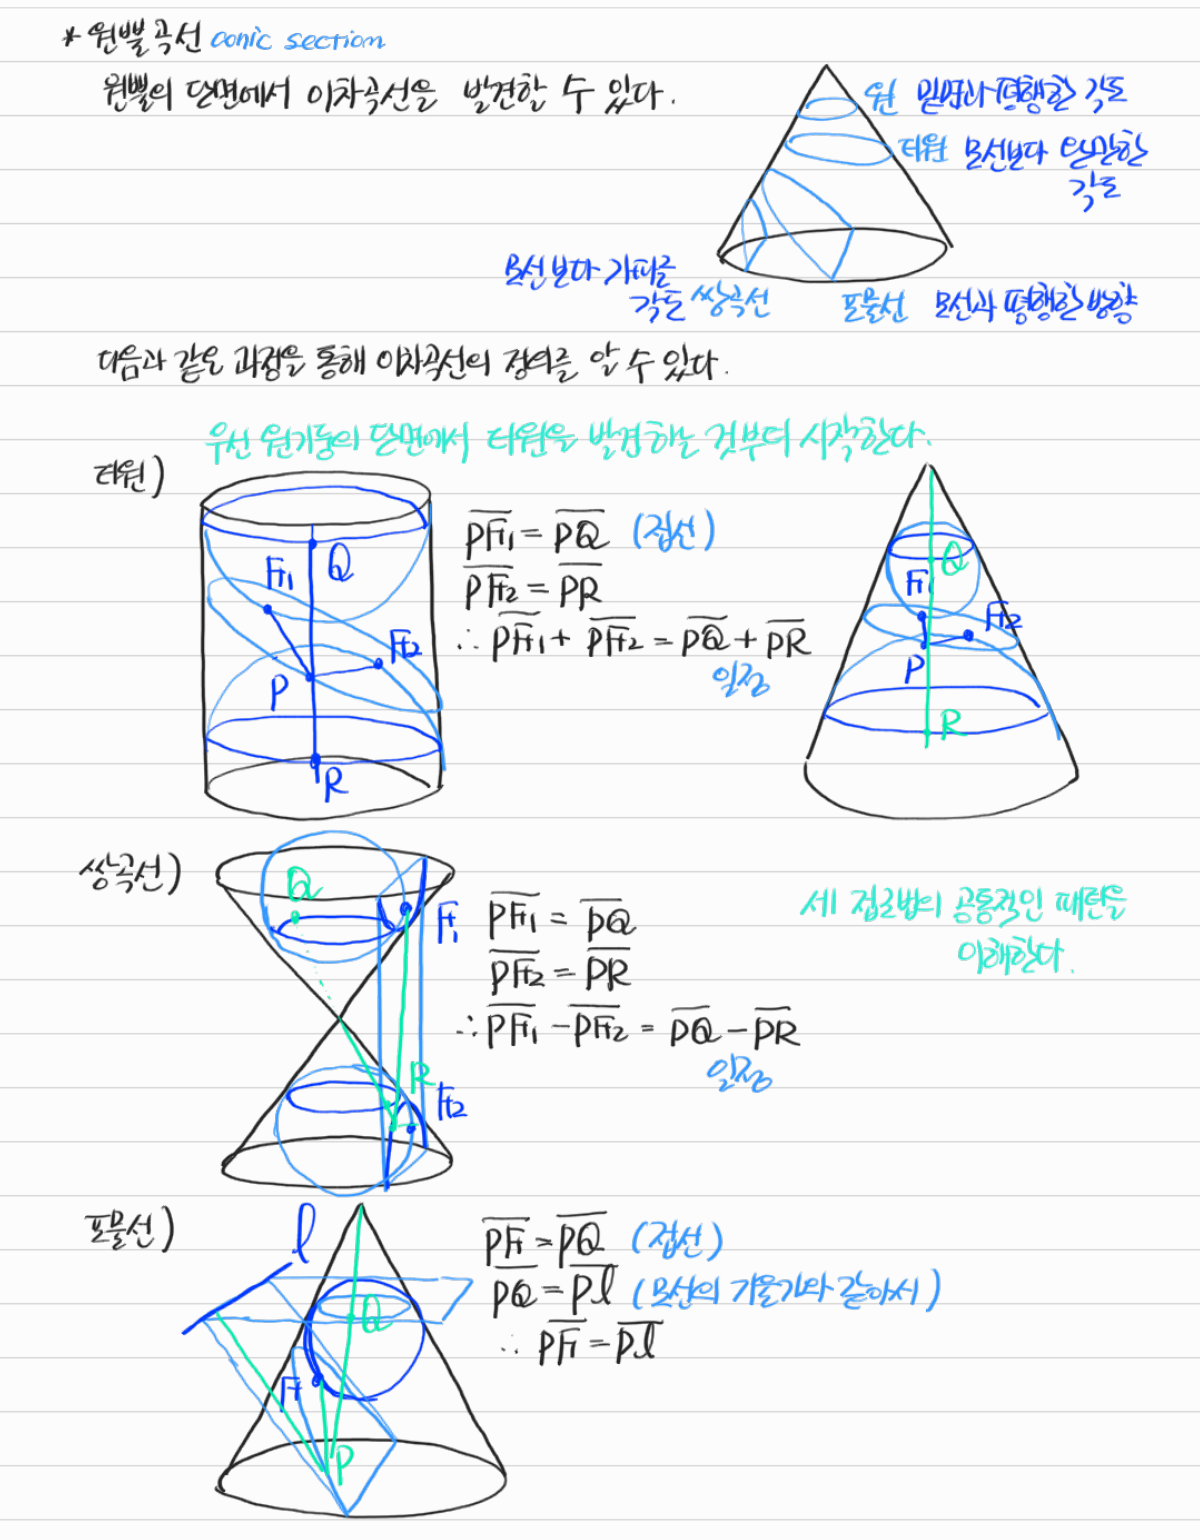 * 원뿔곡선 conic section
원뿔의 단면에서 이차곡선을 발견할 수 있다.
원 밑면과 평행한 각도
타원 모선보다 완만한
각도
모선보다 가파른
각도 쌍곡선
포물선 모선과 평행한 방향
다음과 같은 과정을 통해 이차곡선의 정의를 알 수 있다.
우선 원기둥의 단면에서 타원을 발견하는 것부터 시작한다.
타원)
F₁ Q
F₂
P
R
P̅F̅₁̅ = P̅Q̅ (접선)
P̅F̅₂̅ = P̅R̅
∴ P̅F̅₁̅ + P̅F̅₂̅ = P̅Q̅ + P̅R̅
일정
Q
F₁
F₂
P
R
쌍곡선)
Q
F₁
R
F₂
P̅F̅₁̅ = P̅Q̅
P̅F̅₂̅ = P̅R̅
∴ P̅F̅₁̅ - P̅F̅₂̅ = P̅Q̅ - P̅R̅
일정
세 접근법의 공통적인 패턴을
이해한다.
포물선)
l
Q
F
P
P̅F̅ = P̅Q̅ (접선)
P̅Q̅ = P̅l̅ (모선의 기울기와 같아서)
∴ P̅F̅ = P̅l̅